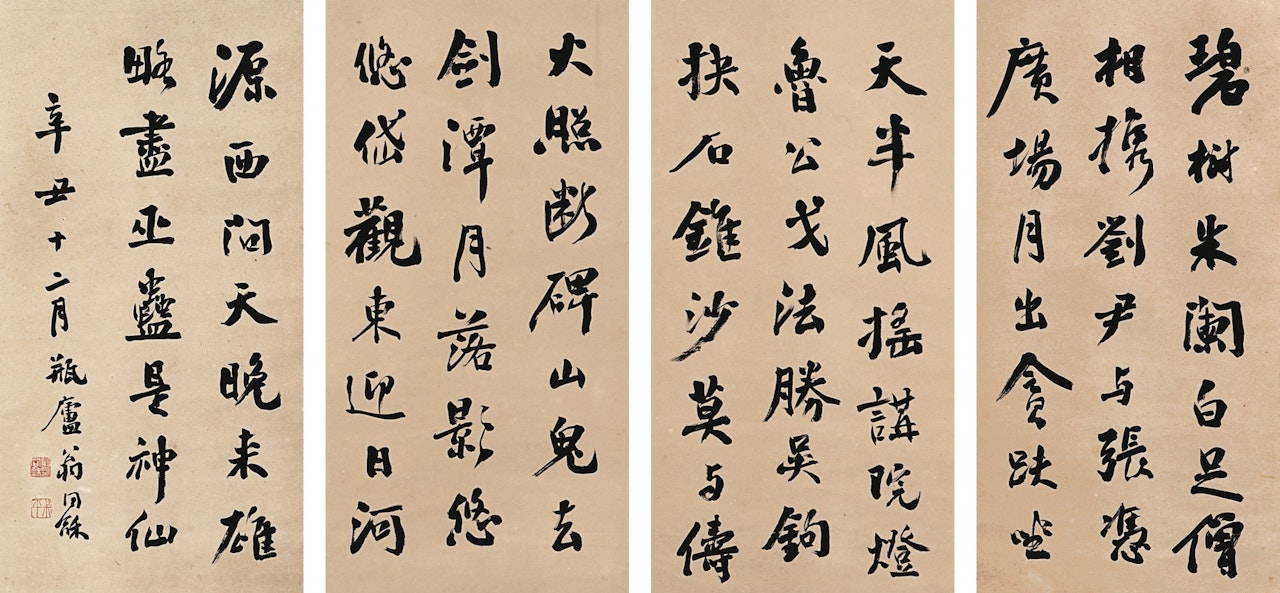 碧樹朱闌白足僧
相携劉尹与張憑
廣場月出貪趺坐
天半風搖講院燈
魯公戈法勝吳鉤
抉石錐沙莫与儔
火照断碑山鬼去
劍潭月落影悠
悠岱觀東迎日河
源西問天晚来雄
略盡巫蠱是神仙
辛丑十二月瓶廬翁同龢